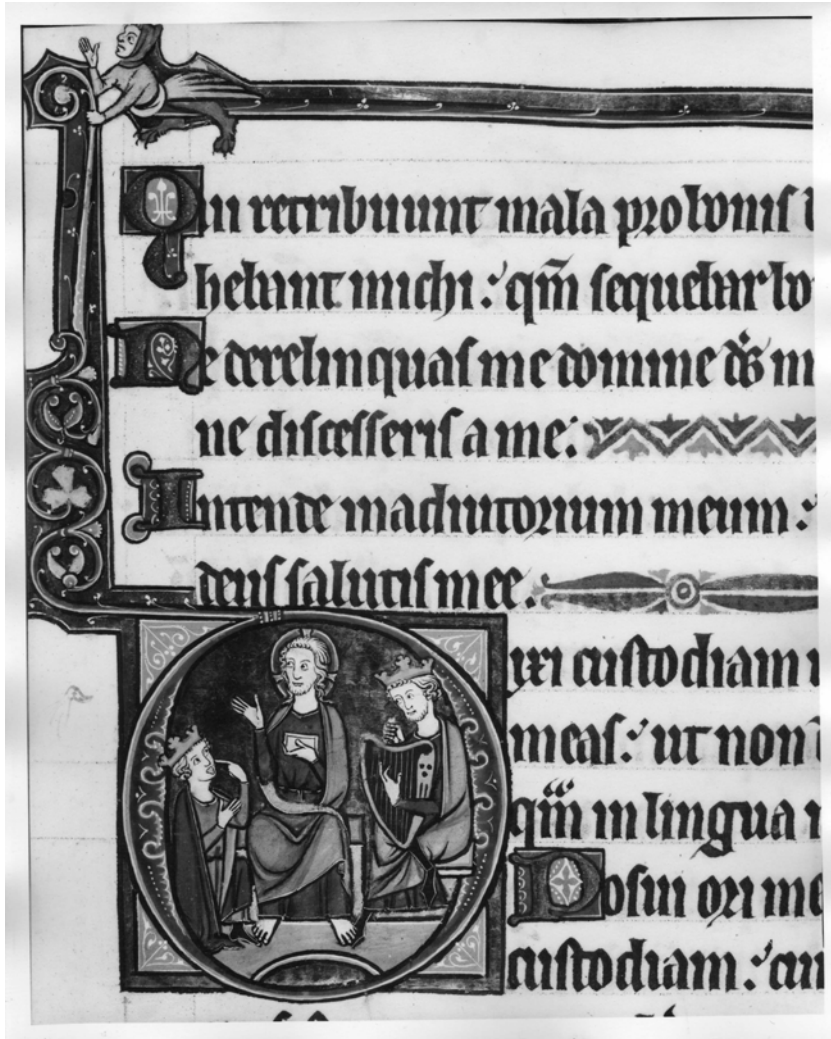 Qui retribuunt mala pro bonis
hebant michi : qm̄ sequebar bo
Ne derelinquas me domine ds̄ m
ne discesseris a me :
Intende in adiutorium meum :
deus salutis mee .
Dixi custodiam
meas : ut non
qm̄ in lingua
Posui ori me
custodiam : cu